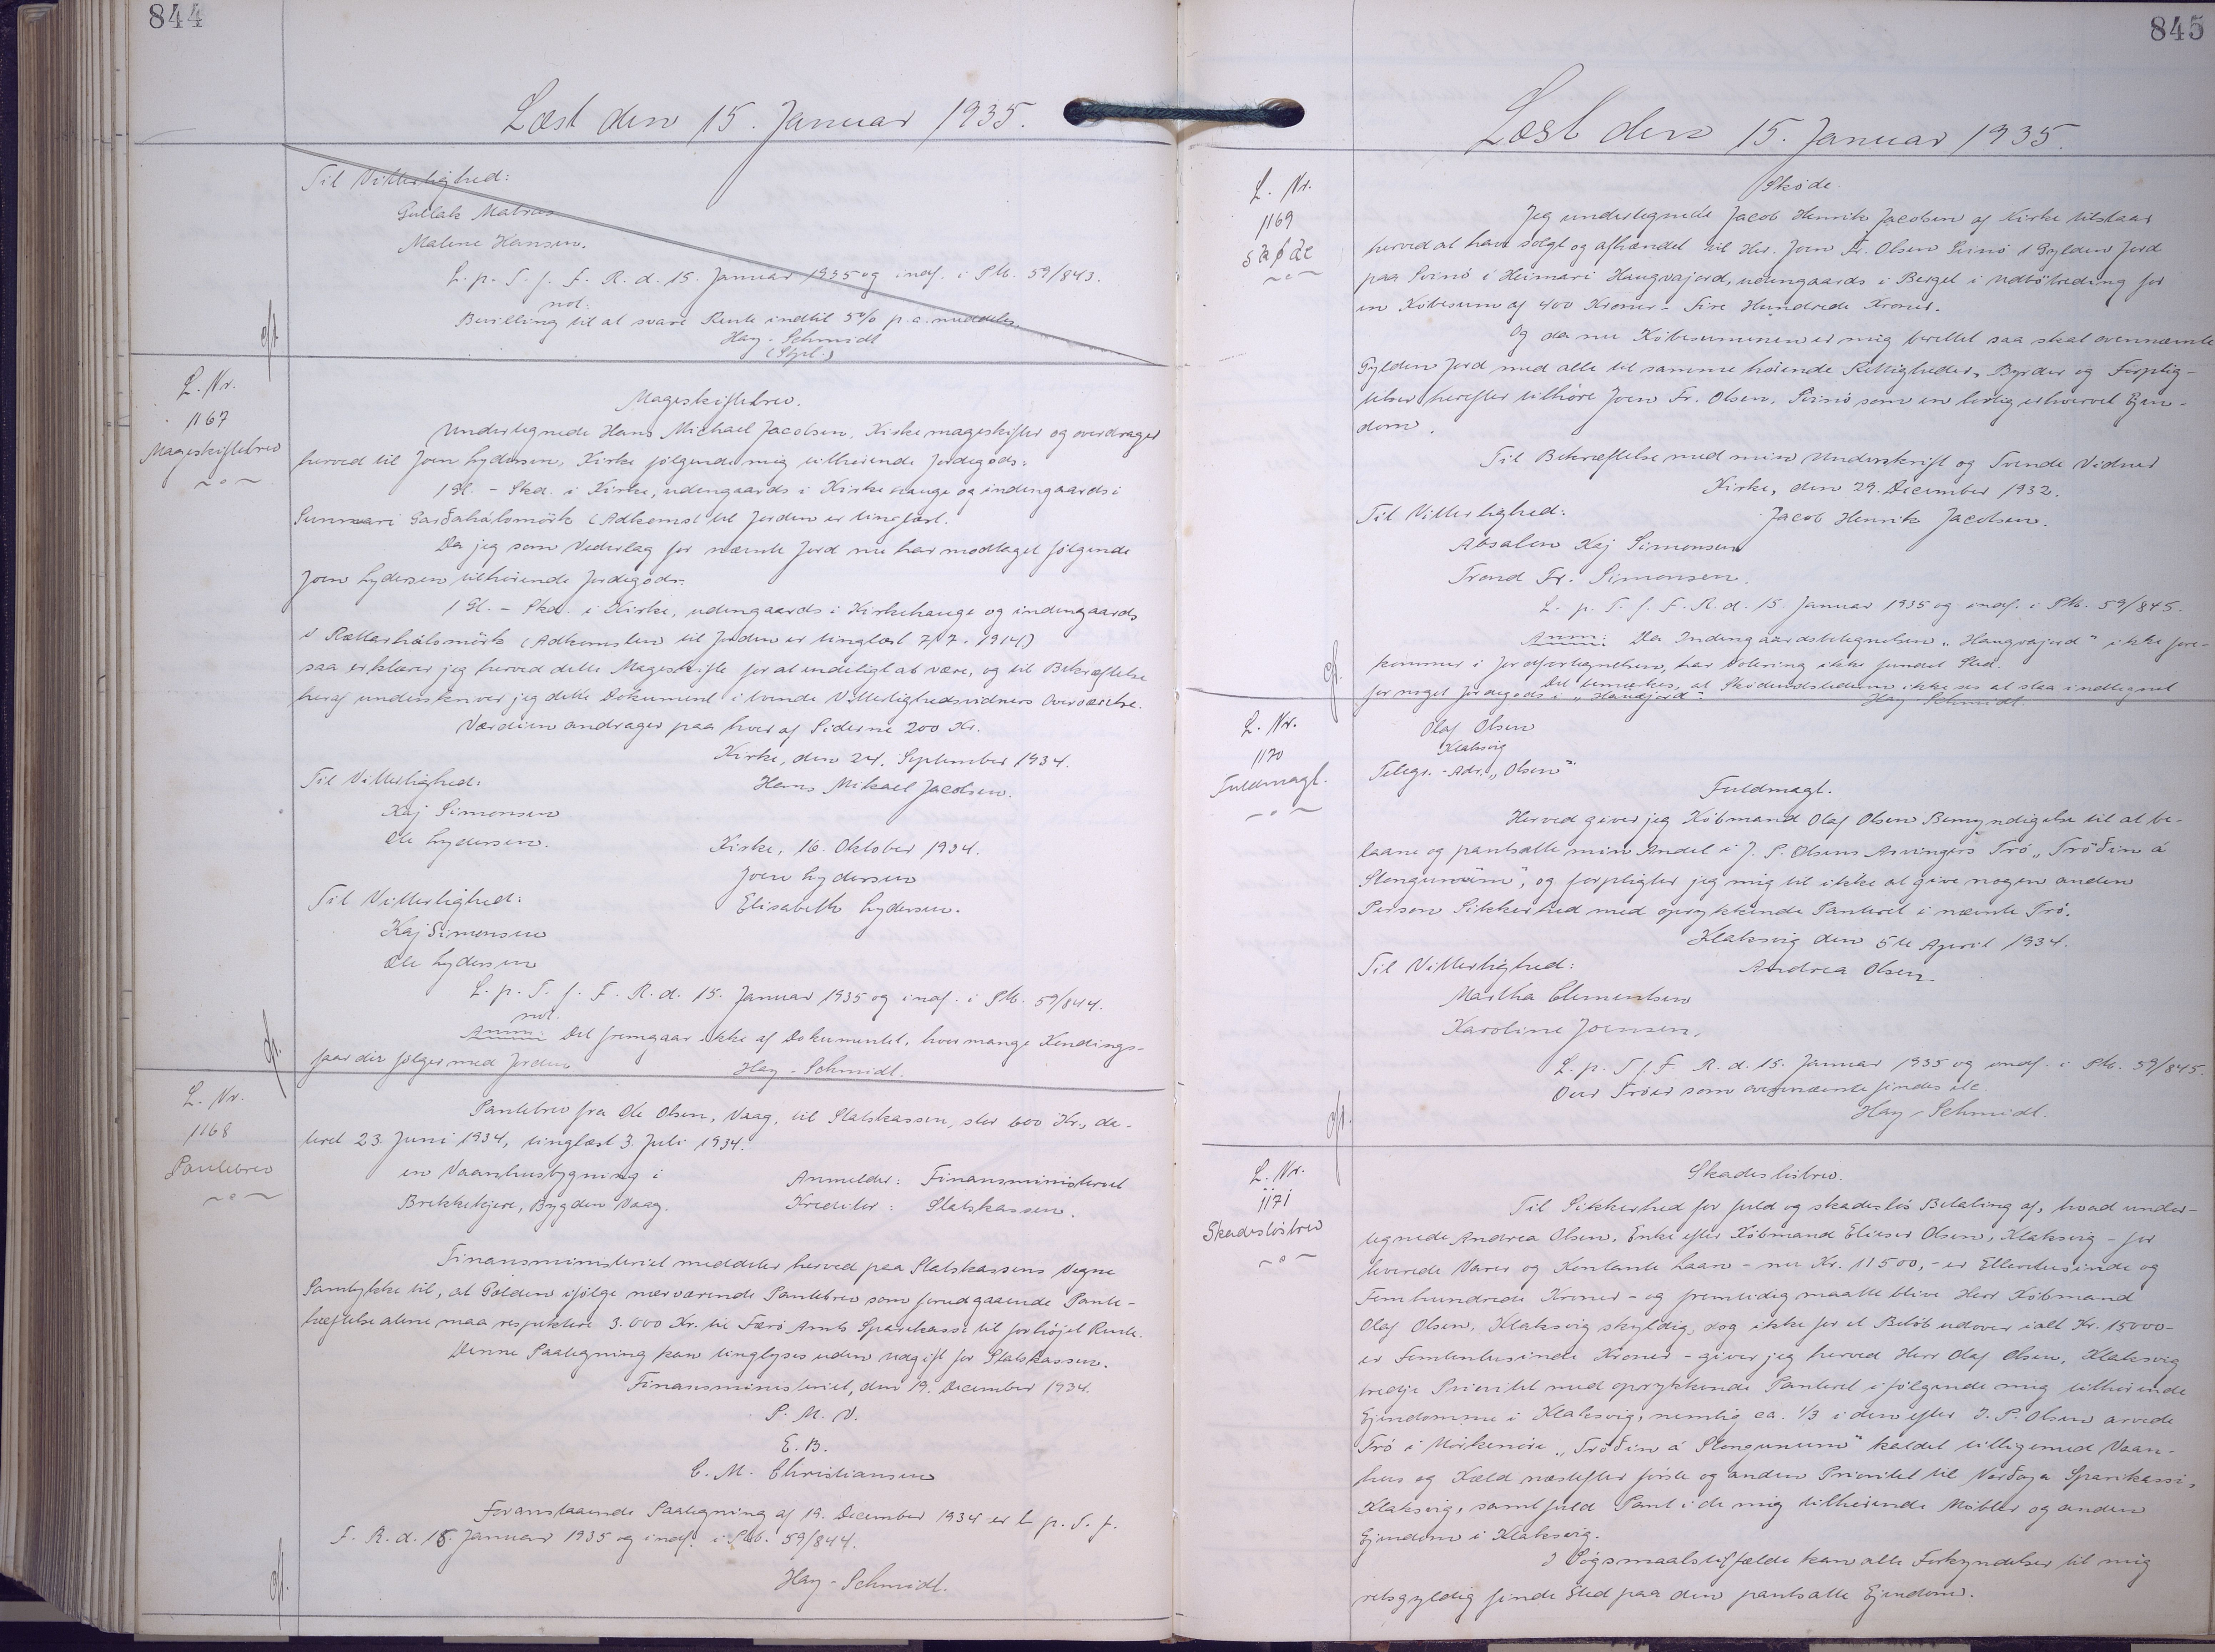 844
Læst den 15. Januar 1935.
Til Vitterlighed:
Gutlak Matras
Malene Hansen.
L. p. T. f. F. R. d. 15. Januar 1935 og indf. i Pb. 59/843.
not:
Bevilling til at svare Rente indtil 5% p.a. meddeles.
Hay-Schmidt
(Stpl.)
L. Nr.
1167
Mageskiftebrev
Mageskiftebrev.
Undertegnede Hans Michael Jacobsen, Kirke mageskifter og overdrager
herved til Joen Lydersen, Kirke følgende mig tilhørende Jordegods:
1 Gl. - Skd. i Kirke, udengaards i Kirke hauge og indengaards i
Sunnari Garðahálsmørk (Adkomst til Jorden er tinglæst.
Da jeg som Vederlag for nævnte Jord nu har modtaget følgende
Joen Lydersen tilhørende Jordegods:
1 Gl. - Skd. i Kirke, udengaards i Kirkehauge og indengaards
i Rættarhálsmørk (Adkomsten til Jorden er tinglæst 7/7. 1914)
saa erklærer jeg herved dette Mageskifte for at endeligt at være, og til Bekræftelse
heraf underskriver jeg dette Dokument i tvende Vitterlighedsvidners Overværelse.
Værdien andrager paa hver af Siderne 200 Kr.
Kirke, den 24. September 1934.
Til Vitterlighed:
Hans Mikael Jacobsen.
Kaj Simonsen
Ole Lydersen.
Kirke, 16. Oktober 1934.
Joen Lydersen
Til Vitterlighed:
Elisabeth Lydersen.
Kaj Simonsen
Ole Lydersen
L. p. T. f. F. R. d. 15. Januar 1935 og indf. i Pb. 59/844.
not.
Anm: Det fremgaar ikke af Dokumentet, hvor mange Kendings-
faar der følger med Jorden
Hay-Schmidt.
L. Nr.
1168
Pantebrev
Pantebrev fra Ole Olsen, Vaag, til Statskassen, stor 600 Kr., da-
teret 23. Juni 1934, tinglæst 3. Juli 1934.
en Vaanhusbygning i
Brekkekjere, Bygden Vaag.
Anmelder: Finansministeriet
Kreditor: Statskassen.
Finansministeriet meddeler herved paa Statskassens Vegne
Samtykke til, at Gælden ifølge nærværende Pantebrev som forudgaaende Pante-
hæftelse alene maa respektere 3.000 Kr. til Færø Amts Sparekasse til forhøjet Rente.
Denne Paategning kan tinglyses uden Udgift for Statskassen.
Finansministeriet, den 19. December 1934.
P. M. V.
E. B.
C. M. Christiansen
Foranstaaende Paategning af 19. December 1934 er l. p. T. f.
F. R. d. 15. Januar 1935 og indf. i Pb. 59/844.
Hay-Schmidt.
845
Læst den 15. Januar 1935.
L. Nr.
1169
Skøde
Skøde.
Jeg undertegnede Jacob Henrik Jacobsen af Kirke tilstaar
herved at have solgt og afhændet til Hr. Joen Fr. Olsen Svinø 1 Gylden Jord
paa Svinø i Heimari Haugvajord, udengaards i Berget i Udbøtreding for
en Købesum af 400 Kroner - Fire Hundrede Kroner.
Og da nu Købesummen er mig berettet saa skal ovennævnte
Gylden Jord med alle til samme hørende Rettigheder, Byrder og Forplig-
telser herefter tilhøre Joen Fr. Olsen, Svinø som en lovlig erhvervet Ejen-
dom.
Til Bekræftelse med min Underskrift og Tvende Vidner
Kirke, den 29. December 1932.
Til Vitterlighed:
Jacob Henrik Jacobsen.
Absalon Kaj Simonsen
Trond Fr. Simonsen.
L. p. T. f. F. R. d. 15. Januar 1935 og indf. i Pb. 59/845.
Anm: Da Indengaardsbetegnelsen "Haugvajord" ikke fore-
kommer i Jordfortegnelsen, har Notering ikke fundet Sted.
Det bemærkes, at Skødeudstederen ikke ses at staa indtegnet
for noget Jordegods i "Haugjord".
Hay-Schmidt.
L. Nr.
1170
Fuldmagt.
Olaf Olsen
Klaksvig
Telegr. - Adr. "Olsen"
Fuldmagt.
Herved giver jeg Købmand Olaf Olsen Bemyndigelse til at be-
laane og pantsætte min Andel i J. P. Olsens Arvingers Trø "Trøðin á
Stongunum", og forpligter jeg mig til ikke at give nogen anden
Person Sikkerhed med oprykkende Panteret i nævnte Trø.
Klaksvig den 5te April 1934.
Til Vitterlighed:
Andrea Olsen
Martha Clementsen
Karoline Joensen.
L. p. T. f. F. R. d. 15. Januar 1935 og indf. i Pb. 59/845.
Over Trøer som ovennævnte findes
Hay-Schmidt.
L. Nr.
1171
Skadesløsbrev
Skadesløsbrev.
Til Sikkerhed for fuld og skadesløs Betaling af, hvad under-
tegnede Andrea Olsen, Enke efter Købmand Elieser Olsen, Klaksvig - for
leverede Varer og Kontante Laan - nu Kr. 11500,- er Ellevetusinde og
Femhundrede Kroner - og fremtidig maatte blive Herr Købmand
Olaf Olsen, Klaksvig skyldig, dog ikke for et Beløb udover ialt Kr. 15000-
er Femtentusinde Kroner - giver jeg herved Herr Olaf Olsen, Klaksvig
tredje Prioritet med oprykkende Panteret i følgende mig tilhørende
Ejendomme i Klaksvig, nemlig ca. 1/3 i den efter J. P. Olsen arvede
Trø i Mørkenøre "Trøðin á Stongunum" kaldet tilligemed Vaan-
hus og Kæld næstefter første og anden Prioritet til Norðoya Sparikassi,
Klaksvig, samt fuld Pant i de mig tilhørende Møbler og anden
Ejendom i Klaksvig.
I Søgsmaalstilfælde kan alle Forkyndelser til mig
retsgyldig finde Sted paa den pantsatte Ejendom.